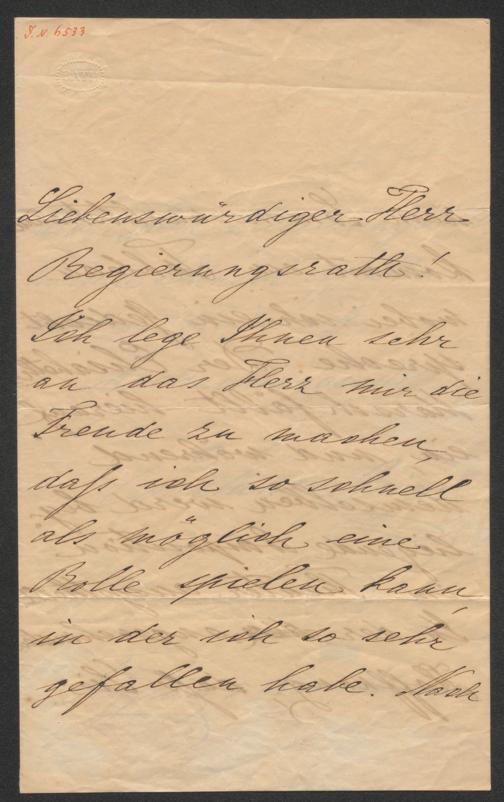 I. N. 6533
Liebenswürdiger Herr
Regierungsrath!
Ich lege Ihnen sehr
an das Herz mir die
Freude zu machen,
daß ich so schnell
als möglich eine
Rolle spielen kann,
in der ich so sehr
gefallen habe. Noch